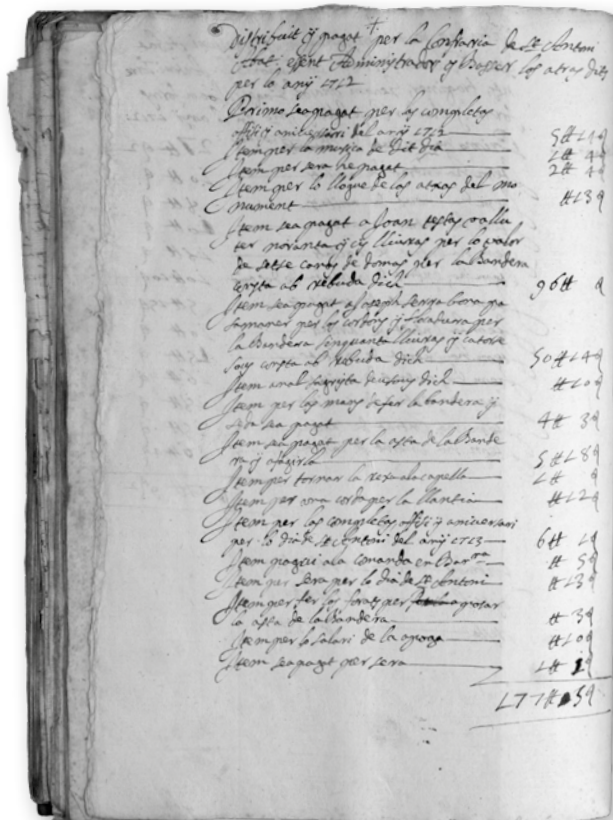 +
Distribuit y pagat per la Confraria de St Antoni
Abat, esent Administrador y Basser los atras dits
per lo any 1712
Primo sea pagat per las completas
offici y aniversari del any 1712
Item per la musica de dit dia
Item per sera he pagat 2 ll 4
Item per lo lloguer de las atxas del mo
nument ll 13
Item sea pagat a Joan
ter noranta y sis lliuras per lo valor
de setse canas de domas per la Bandera
consta ab rebuda dich 96 ll
Item sea pagat a Joseph
samaner per los cordons y flandura per
la Bandera sinquanta lliuras y catorse
sous consta ab rebuda dich 50 ll 14
Item a dich ll 10
Item per las mans de fer la bandera y
seda sea pagat 4 ll 3
Item sea pagat per la asta de la Bande
ra y 5 ll 18
Item per tornar la rexa a la capella 1 ll
Item per una corda per la llantia ll 12
Item per las completas offici y aniversari
per lo dia de St Antoni del any 1713 6 ll 1
Item paguí a la comanda en Barna ll 5
Item per sera per lo dia de St Antoni ll 13
Item per fer los forats per
la asta de la Bandera ll 3
Item per lo salari de la ll 10
Item sea pagat per sera 1 ll 1
177 ll 5